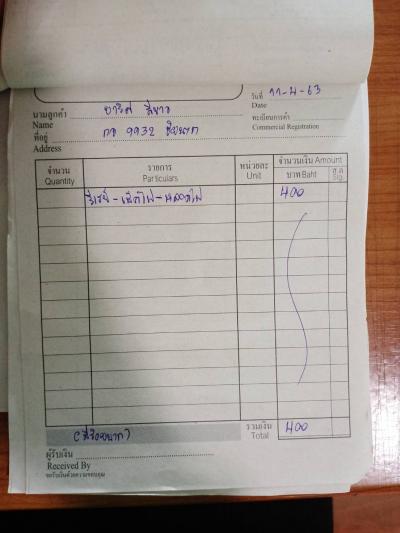 วันที่ 11-4-63
Date
นามลูกค้า
Name
ทะเบียนการค้า
Commercial Registration
ที่อยู่ กว 9932
Address
จำนวน รายการ หน่วยละ จำนวนเงิน Amount
Quantity Particulars Unit บาท Baht ส.ต. Stg.
400
(สี่ร้อยบาท) รวมเงิน 400
Total
ผู้รับเงิน
Received By
ขอรับเงินด้วยความขอบคุณ